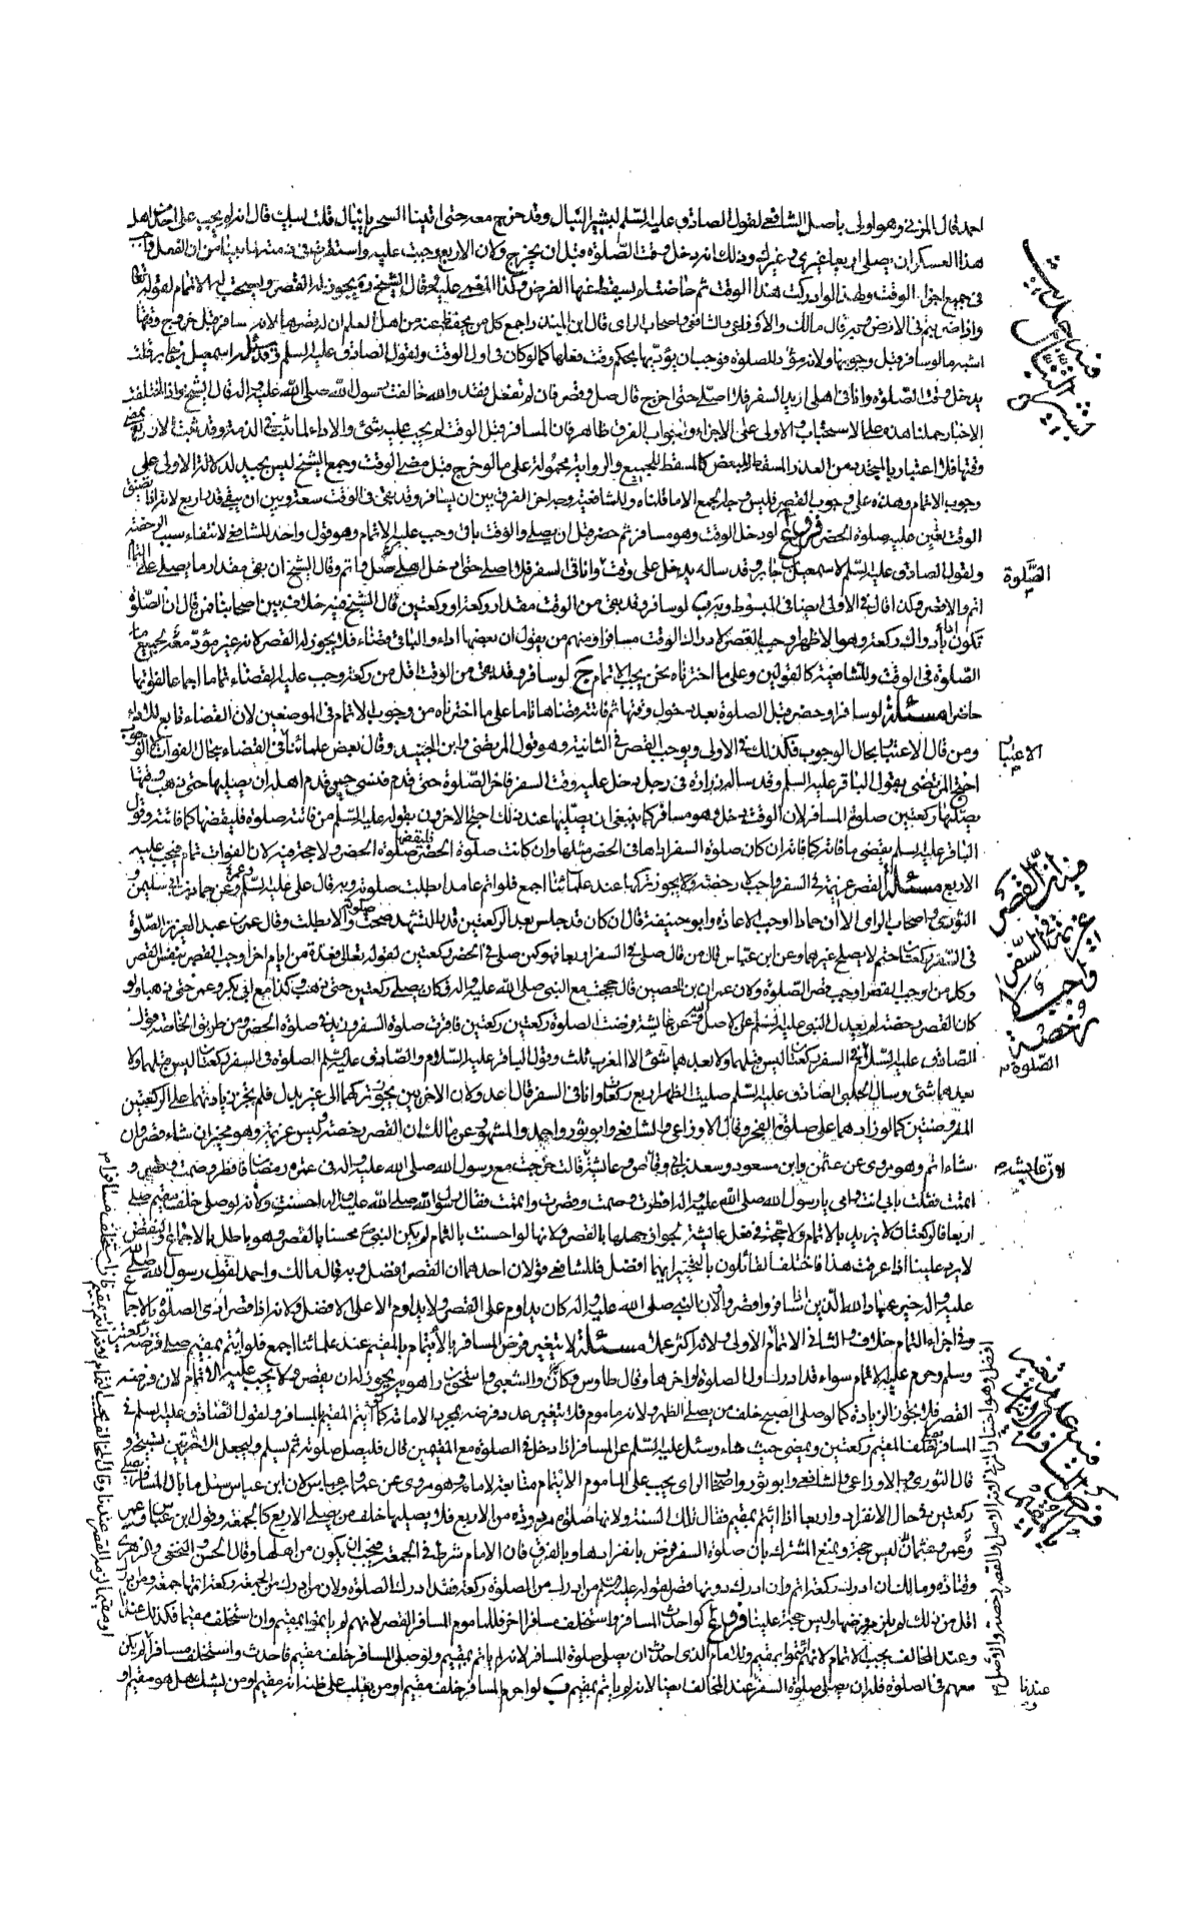 احمد قال المزني وهو اولى باصل الشافعي لقول الصادق عليه السلم لبشير النبال وقد خرج معه حتى اتينا الشجرة يا نبال قلت لبيك قال انه لم يجب على احد من اهل
هذا العسكر ان يصلي اربعا غيري وغيرك وذلك انه دخل وقت الصلوة قبل ان يخرج ولان الاربع وجبت عليه واستقرت في ذمته لما بينا من ان الفعل واجب
في جميع اجزاء الوقت ولهذا لو ادركت هذا الوقت ثم حاضت لم يسقط عنها الفرض وكذا المغمى عليه وقال الشيخ ره يجوز له القصر ويستحب له الاتمام لقوله تعالى
واذا ضربتم في الارض وبه قال مالك والاوزاعي والشافعي واصحاب الراي قال ابن المنذر اجمع كل من يحفظ عنه من اهل العلم ان له قصرها لانه سافر قبل خروج وقتها
اشبه ما لو سافر قبل وجوبها ولانه مؤد للصلوة فوجب ان يؤديها بحكم وقت فعلها كما لو كان في اول الوقت ولقول الصادق عليه السلم وقد سئله اسمعيل بن جابر قلت
يدخل وقت الصلوة وانا في اهلي اريد السفر فلا اصلي حتى اخرج قال صل وقصر فان لم تفعل فقد والله خالفت رسول الله صلى الله عليه واله قال الشيخ واذا اختلفت
الاخبار حملنا هذه على الاستحباب والاولى على الاجزاء والجواب الفرق ظاهر فان المسافر قبل الوقت لم يجب عليه شئ والاداء لما ثبت في الذمة وقد ثبت الاربع بمضي
وقتها فلا اعتبار بما يتجدد من العذر المسقط للبعض كالمسقط للجميع والرواية محمولة على ما لو خرج قبل مضي الوقت وجمع الشيخ ليس بجيد لدلالة الاولى على
وجوب الاتمام وهذه على وجوب القصر فليس وجه الجمع الا ما قلناه وللشافعية وجه اخر الفرق بين ان يسافر وقد بقي في الوقت سعة وبين ان يبقى قدر اربع لانه اذا تضيق
الوقت تعين عليه صلوة الحضر فروع ا لو دخل الوقت وهو مسافر ثم حضر قبل ان يصلي والوقت باق وجب عليه الاتمام وهو قول واحد للشافعي لانتفاء سبب الرخصة
ولقول الصادق عليه السلم لاسمعيل بن جابر وقد ساله يدخل علي وقت الصلوة وانا في السفر فلا اصلي حتى ادخل اهلي صل واتم وقال الشيخ ان بقي مقدار ما يصلي على التمام
اتم والا قصر وكذا قال في الاولى ايضا في المبسوط ب لو سافر وقد بقي من الوقت مقدار ركعة او ركعتين قال الشيخ فيه خلاف بين اصحابنا فمن قال ان الصلوة
تكون اداء بادراك ركعة وهو الاظهر وجب القصر لادراك الوقت مسافرا ومنهم من يقول ان بعضها اداء والباقي قضاء فلا يجوز له القصر لانه غير مؤد لجميع
الصلوة في الوقت وللشافعية كالقولين وعلى ما اخترناه نحن يجب الاتمام ج لو سافر وقد بقي من الوقت اقل من ركعة وجب عليه القضاء تماما اجماعا لفواتها
حاضرا مسئلة لو سافر او حضر وقبل الصلوة بعد دخول وقتها ثم فاتته قضاها تماما على ما اخترناه من وجوب الاتمام في الموضعين لان القضاء تابع للاداء
ومن قال الاعتبار بحال الوجوب فكذلك في الاولى ويوجب القصر في الثانية وهو قول المرتضى وابن الجنيد وقال بعض علمائنا في القضاء بحال الفوات لا الوجوب
احتج المرتضى بقول الباقر عليه السلم وقد ساله زرارة في رجل دخل عليه وقت السفر فاخر الصلوة حتى قدم فنسي حين قدم اهله ان يصليها حتى ذهب وقتها
يصليها ركعتين صلوة المسافر لان الوقت دخل وهو مسافر كما ينبغي ان يصليها عند ذلك احتج الاخرون بقوله عليه السلم من فاتته صلوة فليقضها كما فاتته وقول
الباقر عليه السلم يقضي ما فاته كما فاته ان كان صلوة السفر اداها في الحضر مثلها وان كانت صلوة الحضر فليقض صلوة الحضر ولا حجة فيه لان الفوات تمام فيجب عليه
الاربع مسئلة القصر عزيمة في السفر واجب لا رخصة ولا يجوز تركها عند علمائنا اجمع فلو اتم عامدا بطلت صلوته وبه قال علي عليه السلم وعمر وعن حماد بن ابي سليمن و
الثوري واصحاب الراي الا ان حمادا اوجب الاعادة وابو حنيفة قال ان كان قد جلس بعد الركعتين قدر التشهد صحت صلوته والا بطلت وقال عمر بن عبد العزيز الصلوة
في السفر ركعتان حتم لا يصلح غيرهما وعن ابن عباس قال من قال صلى في السفر اربعا فهو كمن صلى في الحضر ركعتين لقوله تعالى فعدة من ايام اخر اوجب القصر بنفس القصر
وكل من اوجب القصر اوجب قصر الصلوة ولان عمران بن الحصين قال حججت مع النبي صلى الله عليه واله وكان يصلي ركعتين حتى ذهب وكذا مع ابي بكر وعمر حتى ذهبا ولو
كان القصر رخصة لم يعدل النبي عليه السلم عن الاصل وعن عايشة فرضت الصلوة ركعتين ركعتين فاقرت صلوة السفر وزيد في صلوة الحضر ومن طريق الخاصة قول
الصادق عليه السلام في السفر ركعتان ليس قبلهما ولا بعدهما شئ الا المغرب ثلث وقول الباقر عليه السلام والصادق عليه السلم الصلوة في السفر ركعتان ليس قبلهما ولا
بعدهما شئ وسال الحلبي الصادق عليه السلم صليت الظهر اربع ركعات وانا في السفر قال اعد ولان الاخريين يجوز تركهما الى غير بدل فلم يجز زيادتهما على الركعتين
المفروضتين كما لو زادهما على صلوة الفجر وقال الاوزاعي والشافعي وابو ثور واحمد والمشهور عن مالك ان القصر رخصة وليس عزيمة وهو مخير ان شاء قصر وان
شاء اتم وهو مروي عن عثمن وابن مسعود وسعد بن ابي وقاص وعايشة قالت خرجت مع رسول الله صلى الله عليه واله في عمرة رمضان فافطر وصمت وقصر و
اتممت فقلت بابي انت وامي يا رسول الله صلى الله عليه واله افطرت وصمت وقصرت واتممت فقال رسول الله صلى الله عليه واله احسنت ولانه لو صلى خلف مقيم صلى
اربعا فالركعتان لا يزيد بالاتمام ولا حجة في فعل عايشة لجواز جهلها بالقصر ولانها لو احسنت بالتمام لم يكن النبي ص محسنا بالقصر وهو باطل بالاجماع والبعض
لا يرد علينا اذا عرفت هذا فاختلف القائلون بالتخيير ايهما افضل فللشافعي قولان احدهما ان القصر افضل وبه قال مالك واحمد لقول رسول الله صلى الله
عليه واله خير عباد الله الذين اذا سافروا قصروا ولان النبي صلى الله عليه واله كان يداوم على القصر ولا يداوم الا على الافضل ولانه اذا قصر ادى الصلوة بالاجماع
وفي اجزاء التمام خلاف والثاني الاتمام الاولى لانه اكثر عملا مسئلة لا يتغير فرض المسافر بالايتمام بالمقيم عند علمائنا اجمع فلو ايتم بمقيم صلى فرضه ركعتين
وسلم وحرم عليه الاتمام سواء قد ادرك اول الصلوة او اخرها وقال طاوس والشعبي واسحق بن راهويه يجوز له ان يقصر ولا يجب عليه الاتمام لان فرضه
القصر فلا يجوز الزيادة كما لو صلى الصبح خلف من يصلي الظهر ولانه ماموم فلا يتغير عدد فرضه بمجرد الامامة كما لو ايتم المقيم بالمسافر ولقول الصادق عليه السلم في
المسافر يصلي خلف المقيم ركعتين ويمضي حيث شاء وسئل عليه السلم عن المسافر اذا دخل في الصلوة مع المقيمين قال فليصل صلوته ثم يسلم وليجعل الاخيرتين سبحة و
قال الثوري والاوزاعي والشافعي وابو ثور واصحاب الراي يجب على الماموم الايتمام متابعة لامامه وهو مروي عن عمر وابن عباس لان ابن عباس سئل ما بال المسافر يصلي
ركعتين في حال الانفراد واربعا اذا ايتم بمقيم فقال تلك السنة ولانها صلوة مردودة من الاربع فلا يصليها خلف من يصلي الاربع كالجمعة وقول ابن عباس ليس
وعمر وعثمان ليس حجة ونمنع المشترك بان صلوة السفر فرض بانفرادها وبالفرق فان الامام شرط في الجمعة فيجب ان يكون من اهلها وقال الحسن والنخعي والزهري
وقتادة ومالك ان ادرك ركعة اتم وان ادرك دونها قصر لقوله عليه السلم من ادرك من الصلوة ركعة فقد ادرك الصلوة ولان من ادرك من الجمعة ركعة اتمها جمعة ومن ادرك
اقل من ذلك لم يلزمه فرضها وليس حجة علينا فروع ا لو احدث المسافر واستخلف مسافرا اخر فللماموم المسافر القصر لانهم لم ياتموا بمقيم وان استخلف مقيما فكذلك عندنا
وعند المخالف يجب الاتمام لانهم ائتموا بمقيم وللامام الذي احدث ان يصلي صلوة المسافر لانه لم ياتم بمقيم ولو صلى المسافر خلف مقيم فاحدث واستخلف مسافرا لم يكن
معهم في الصلوة فله ان يصلي صلوة السفر عند المخالف ايضا لانه لم ياتم بمقيم ب لو احرم المسافر خلف مقيم او من يغلب على ظنه انه مقيم او من يشك هل هو مقيم او
الصلوة
الاعتبار
الصلوة
عندنا
فيه حديث
بشير النبال
في ان القصر
عزيمة في السفر
واجب لا
رخصة
فيه عدم تغير
فرض المسافر بالايتمام
بالمقيم